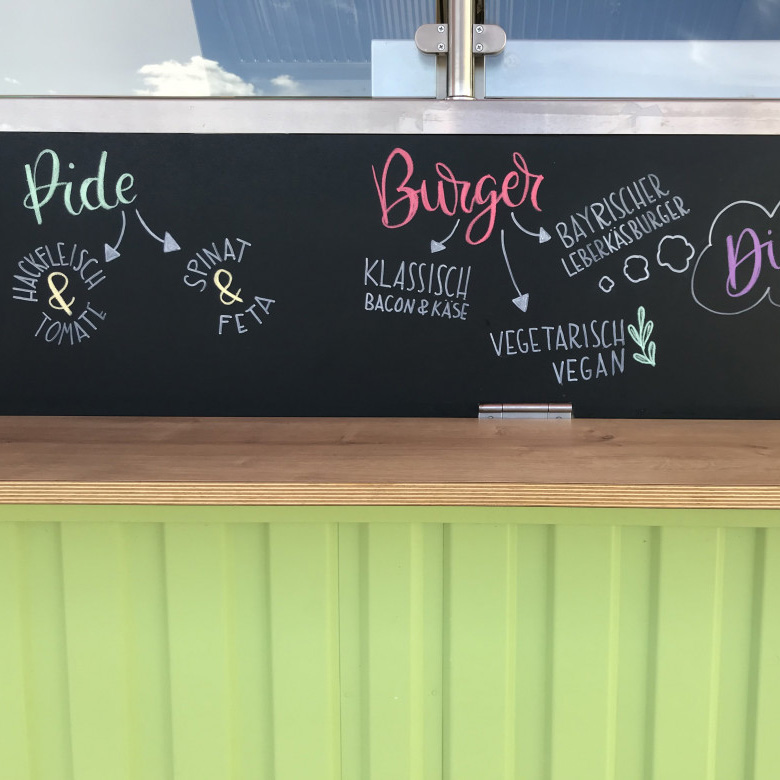 Pide
HACKFLEISCH
&
TOMATE
SPINAT
&
FETA
Burger
KLASSISCH
BACON & KÄSE
VEGETARISCH
VEGAN
BAYRISCHER
LEBERKÄSBURGER
Di